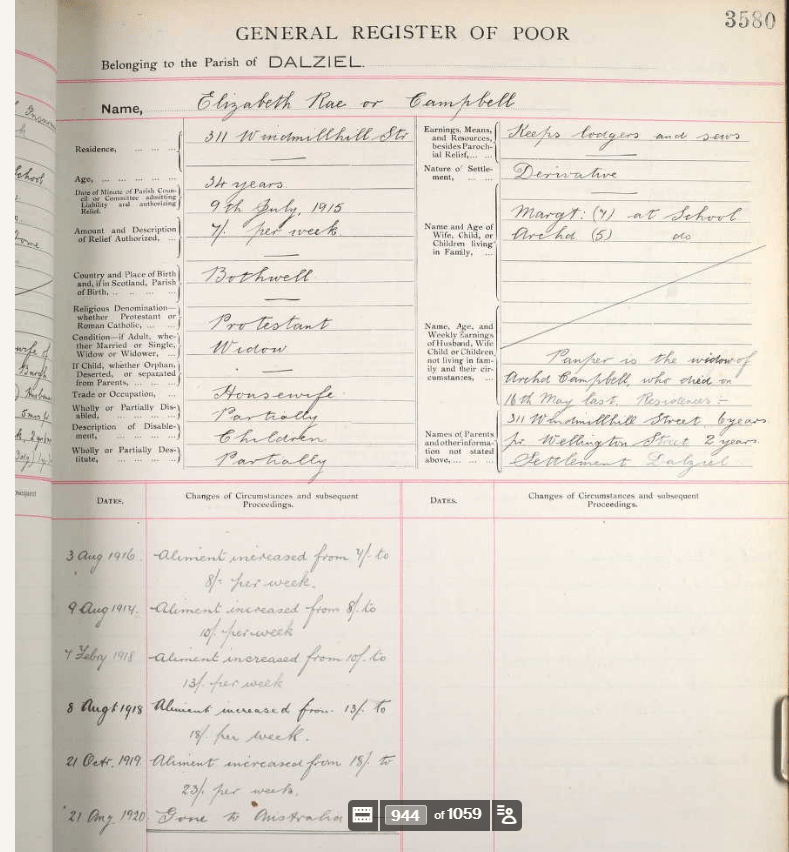 3580
GENERAL REGISTER OF POOR
Belonging to the Parish of DALZIEL.
Name, Elizabeth Rae or Campbell
Residence, 311 Windmillhill Str
Age, 34 years
Date of Minute of Parish Coun-
cil or Committee admitting
Liability and authorizing
Relief. 9th July, 1915
Amount and Description
of Relief Authorized, 7/- per week.
Country and Place of Birth
and, if in Scotland, Parish
of Birth, Bothwell
Religious Denomination—
whether Protestant or
Roman Catholic, Protestant
Condition—if Adult, whe-
ther Married or Single,
Widow or Widower, Widow
If Child, whether Orphan,
Deserted, or separated
from Parents,
Trade or Occupation, Housewife
Wholly or Partially Dis-
abled, Partially
Description of Disable-
ment, Children
Wholly or Partially Des-
titute, Partially
Earnings, Means,
and Resources,
besides Paroch-
ial Relief, Keeps lodgers and sews
Nature of Settle-
ment, Derivative
Name and Age of
Wife, Child, or
Children living
in Family,
Margt: (7) at School
Archd (5) do
Name, Age, and
Weekly Earnings
of Husband, Wife
Child or Children,
not living in fam-
ily and their cir-
cumstances,
Names of Parents
and other informa-
tion not stated
above,
Pauper is the widow of
Archd Campbell, who died on
16th May last. Residences :-
311 Windmillhill Street, 6 years
pr. Wellington Street 2 years
Settlement Dalziel
DATES. Changes of Circumstances and subsequent
Proceedings.
DATES. Changes of Circumstances and subsequent
Proceedings.
3 Aug 1916. Aliment increased from 7/- to
8/- per week.
9 Aug 1917. Aliment increased from 8/- to
10/- per week
7 Feby 1918 Aliment increased from 10/- to
13/- per week
8 Augt 1918 Aliment increased from 13/- to
18/- per week.
21 Octr. 1919 Aliment increased from 18/- to
23/- per week.
21 Aug 1920 Gone to Australia
944 of 1059